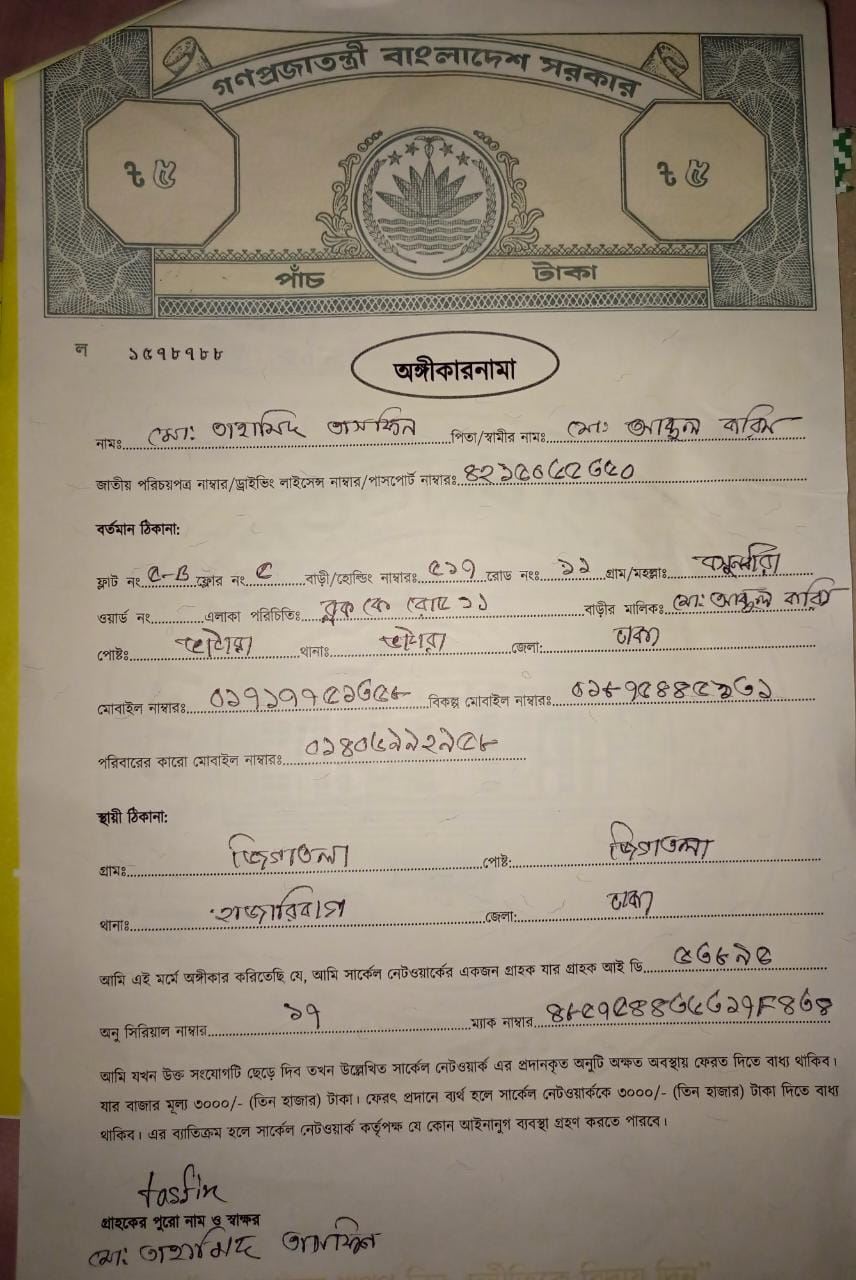 গণপ্রজাতন্ত্রী বাংলাদেশ সরকার
৳ ৫ ৳ ৫
পাঁচ টাকা
ল ১৫৭৮৭৮৮
অঙ্গীকারনামা
নামঃ মো: তাহামিদ তাসফিন পিতা/স্বামীর নামঃ মো: আব্দুল বারিব
জাতীয় পরিচয়পত্র নাম্বার/ড্রাইভিং লাইসেন্স নাম্বার/পাসপোর্ট নাম্বারঃ
বর্তমান ঠিকানা:
ফ্লাট নং ৫-B ফ্লোর নং ৫ বাড়ী/হোল্ডিং নাম্বারঃ ৫১৭ রোড নংঃ ১১ গ্রাম/মহল্লাঃ বসুন্ধরা
ওয়ার্ড নং এলাকা পরিচিতিঃ ব্লক কে রোড ১১ বাড়ীর মালিকঃ মো: আব্দুল বারিব
পোষ্টঃ ভাটারা থানাঃ ভাটারা জেলা: ঢাকা
মোবাইল নাম্বারঃ বিকল্প মোবাইল নাম্বারঃ
পরিবারের কারো মোবাইল নাম্বারঃ
স্থায়ী ঠিকানা:
গ্রামঃ জিগাতলা পোষ্ট: জিগাতলা
থানাঃ হাজারিবাগ জেলা: ঢাকা
আমি এই মর্মে অঙ্গীকার করিতেছি যে, আমি সার্কেল নেটওয়ার্কের একজন গ্রাহক যার গ্রাহক আই ডি
অনু সিরিয়াল নাম্বার ১৭ ম্যাক নাম্বার
আমি যখন উক্ত সংযোগটি ছেড়ে দিব তখন উল্লেখিত সার্কেল নেটওয়ার্ক এর প্রদানকৃত অনুটি অক্ষত অবস্থায় ফেরত দিতে বাধ্য থাকিব।
যার বাজার মূল্য ৩০০০/- (তিন হাজার) টাকা। ফেরৎ প্রদানে ব্যর্থ হলে সার্কেল নেটওয়ার্ককে ৩০০০/- (তিন হাজার) টাকা দিতে বাধ্য
থাকিব। এর ব্যতিক্রম হলে সার্কেল নেটওয়ার্ক কর্তৃপক্ষ যে কোন আইনানুগ ব্যবস্থা গ্রহণ করতে পারবে।
tasfin
গ্রাহকের পুরো নাম ও স্বাক্ষর
মো: তাহামিদ তাসফিন